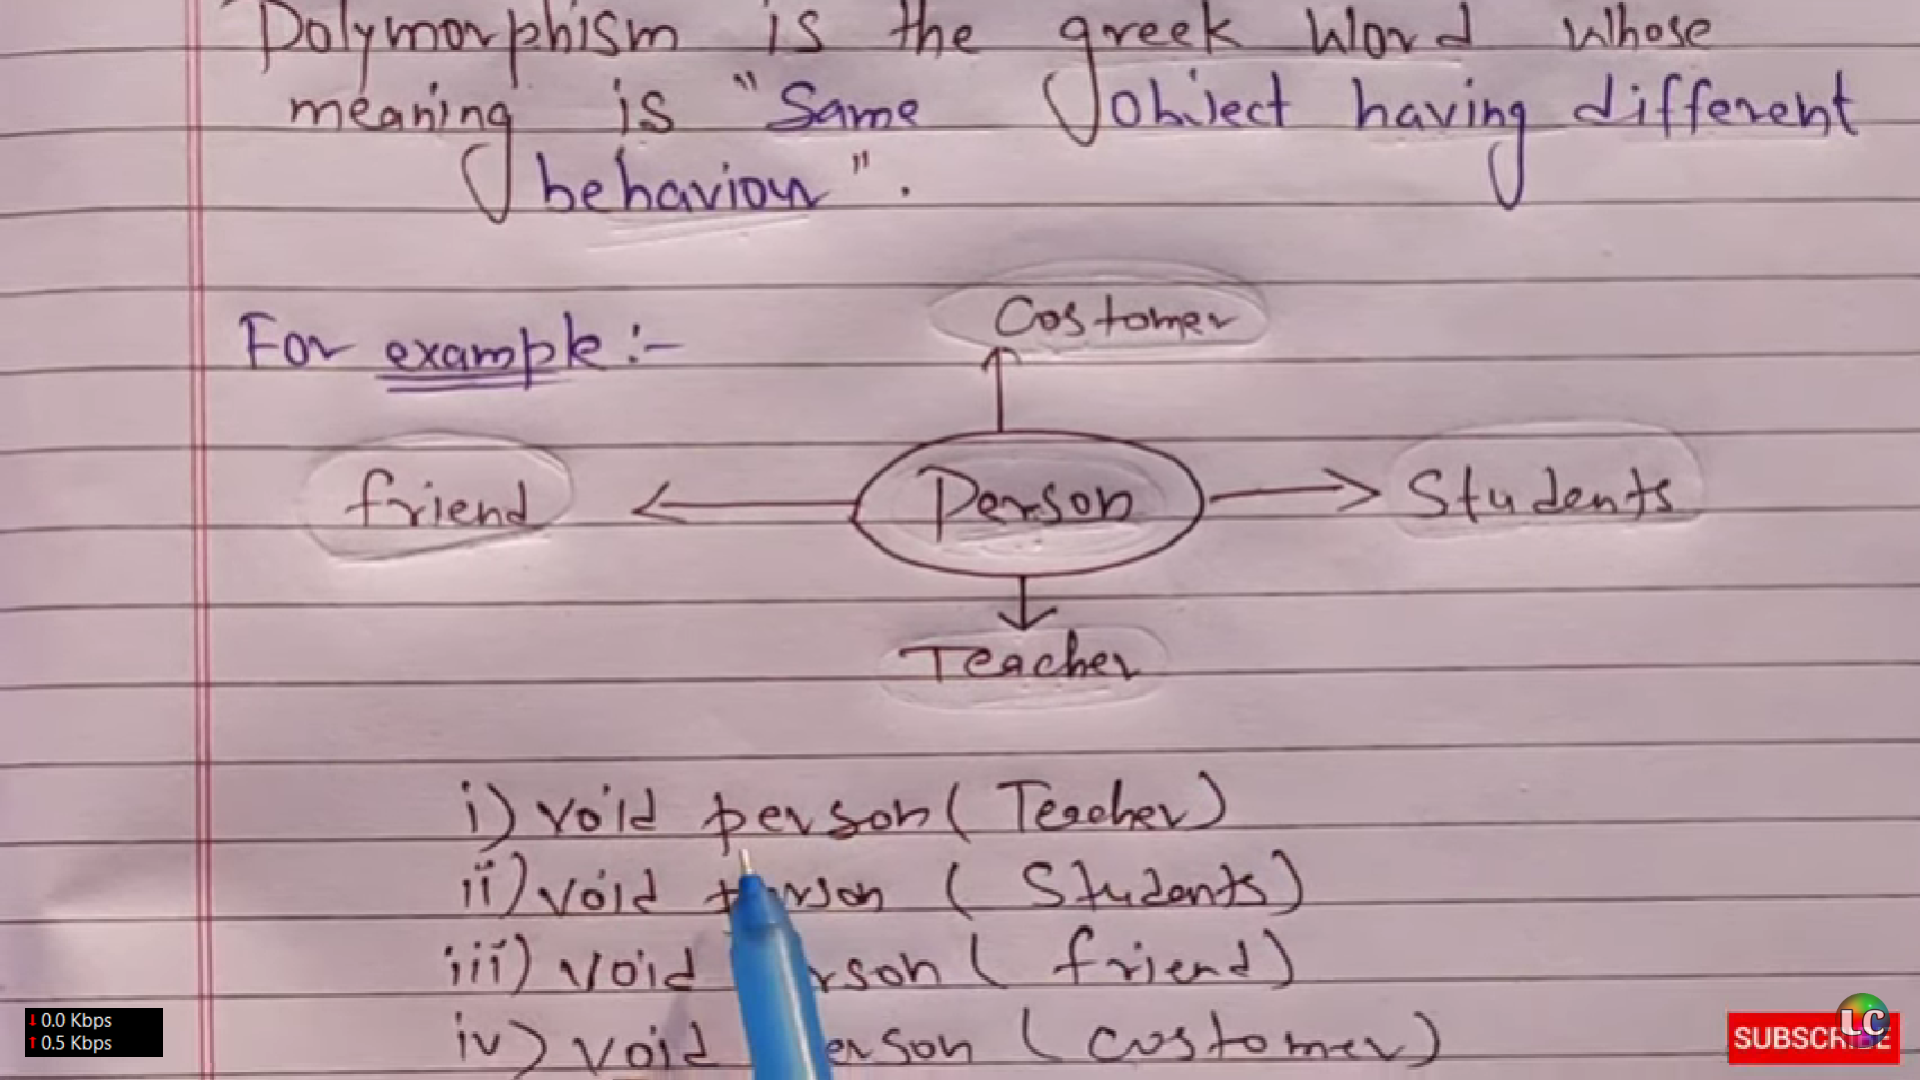 Polymorphism is the greek word whose
meaning is "Same object having different
behaviour".
For example :-
Costomer
friend
Person
Students
Teacher
i) void person( Teacher)
ii) void person ( Students)
iii) void person( friend)
iv) void person ( costomer)
↓ 0.0 Kbps
↑ 0.5 Kbps
SUBSCRIBE
LC